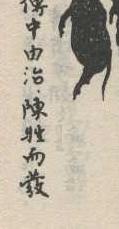 傳中由治、陳勝而發